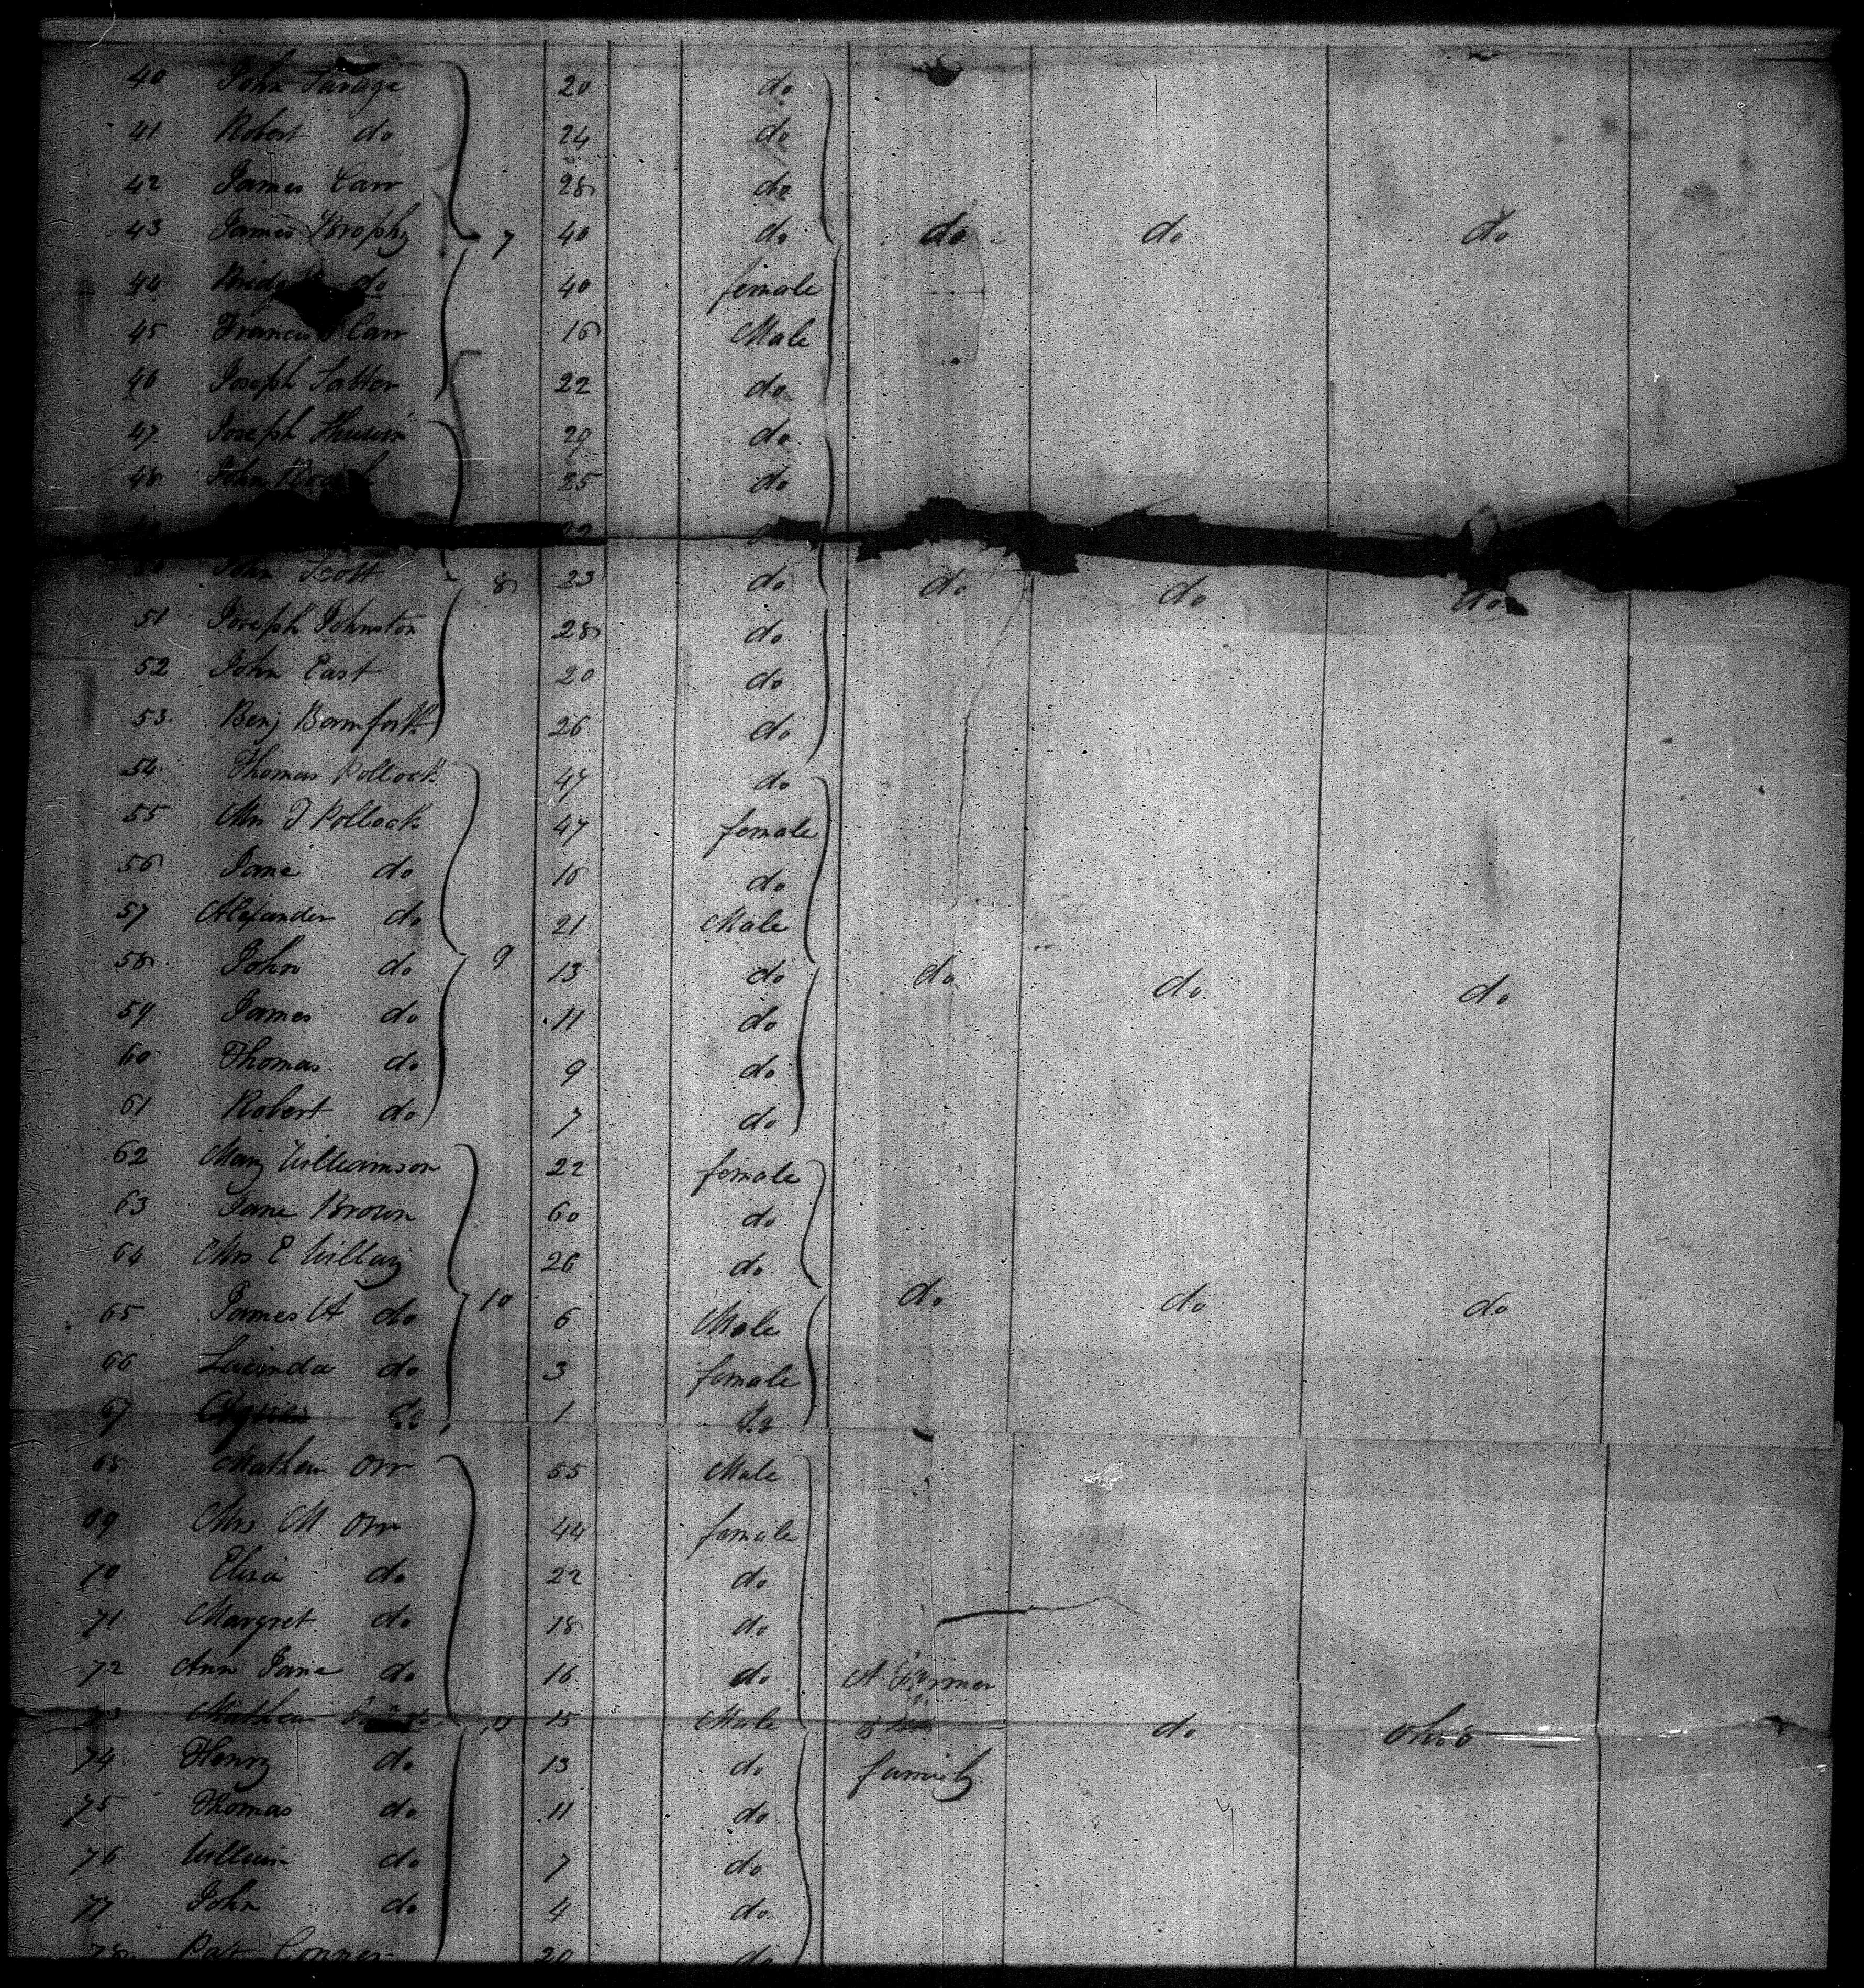 40 John Savage 20 do
41 Robert do 24 do
42 James Carr 28 do
43 James Brophy 7 40 do do do do
44 do 40 female
45 Francis Carr 16 Male
46 Joseph 22 do
47 Joseph 29 do
48 John 25 do
John Scott 8 23 do do do do
51 Joseph Johnston 28 do
52 John East 20 do
53 Benj Bamforth 26 do
54 Thomas Pollock 47 do
55 Mrs T Pollock 47 female
56 Jane do 16 do
57 Alexander do 21 Male
58 John do 9 13 do do do do
59 James do 11 do
60 Thomas do 9 do
61 Robert do 7 do
62 Mary Williamson 22 female
63 Jane Brown 60 do
64 Mrs E 26 do
65 James A do 10 6 Male do do do
66 Lucinda do 3 female
67 do 1 do
68 Mathew Orr 55 Male
69 Mrs M Orr 44 female
70 Eliza do 22 do
71 Margret do 18 do
72 Ann Jane do 16 do A Farmer
73 Mathew do 11 15 Male & do Ohio
74 Henry do 13 do family
75 Thomas do 11 do
76 William do 7 do
77 John do 4 do
78 Pat Conner 20 do